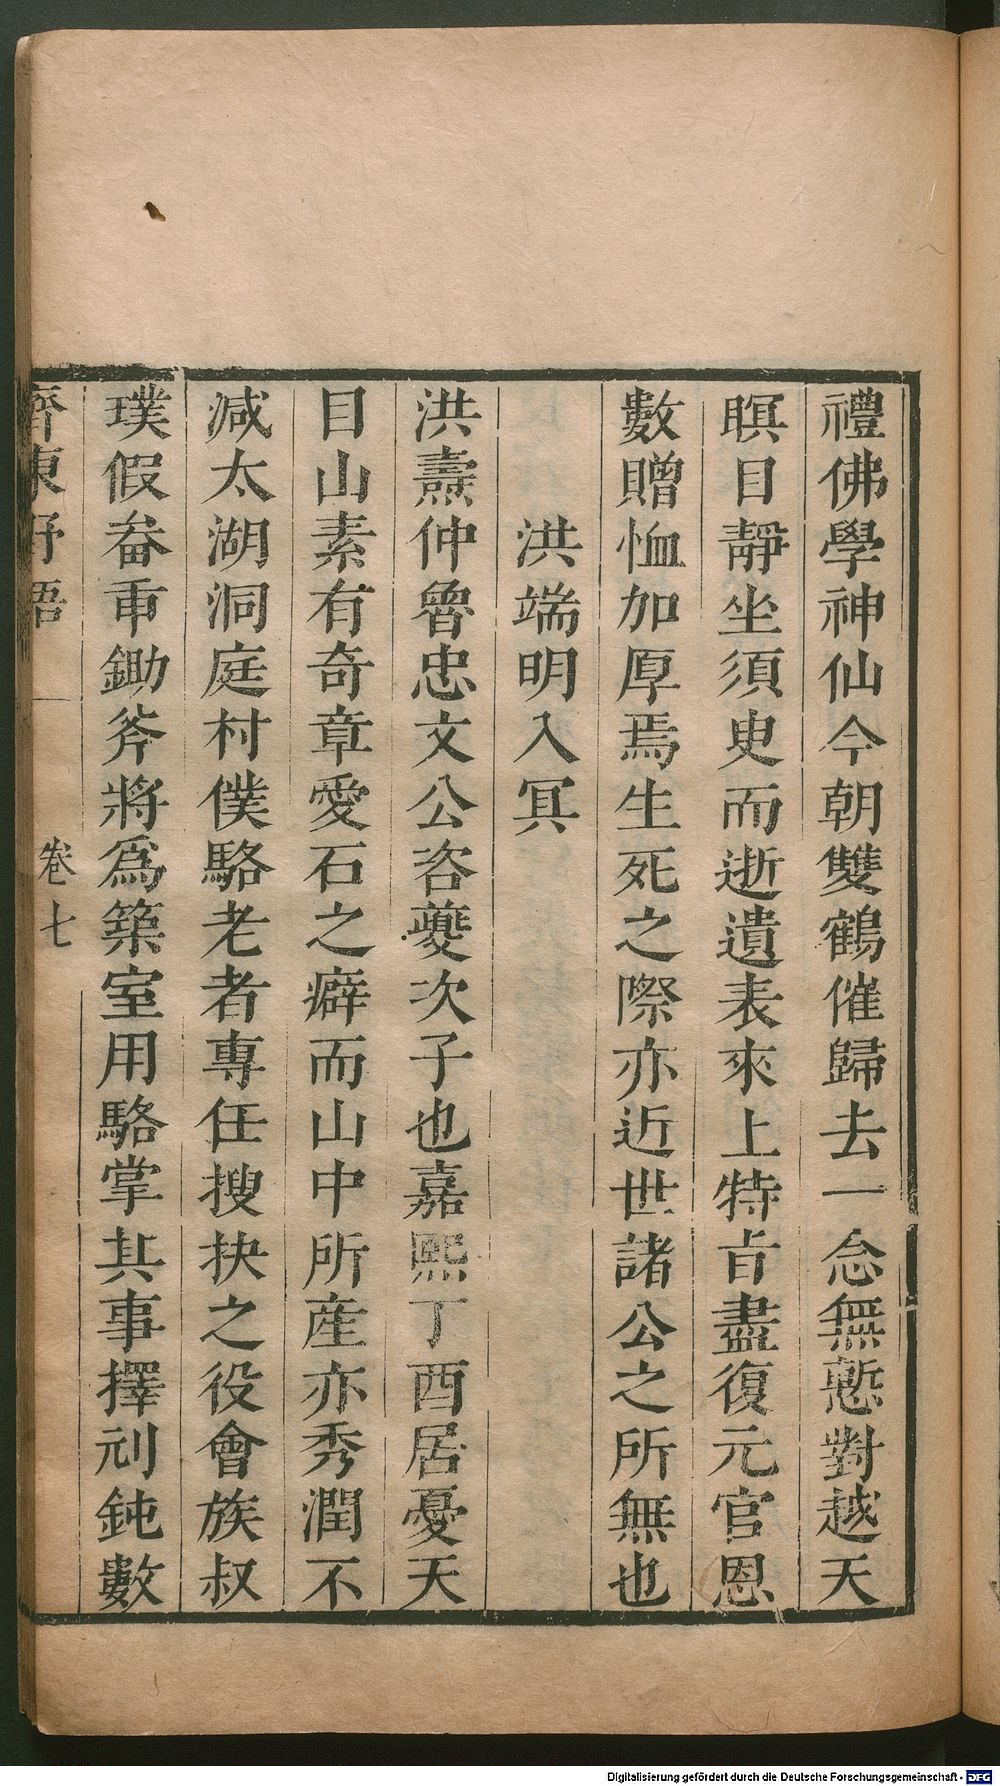 禮佛學神仙今朝雙鶴催歸去一念無慙對越天
瞑目靜坐須史而逝遺表來上特旨盡復元官恩
數贈恤加厚焉生死之際亦近世諸公之所無也
洪端明入冥
洪燾仲魯忠文公咨夔次子也嘉熙丁酉居憂天
目山素有奇章愛石之癖而山中所産亦秀潤不
減太湖洞庭村僕駱老者專任搜抉之役會族叔
璞假畚臿鋤斧將爲築室用駱掌其事擇刓鈍數
齊東野語
卷七
Digitalisierung gefördert durch die Deutsche Forschungsgemeinschaft - DFG